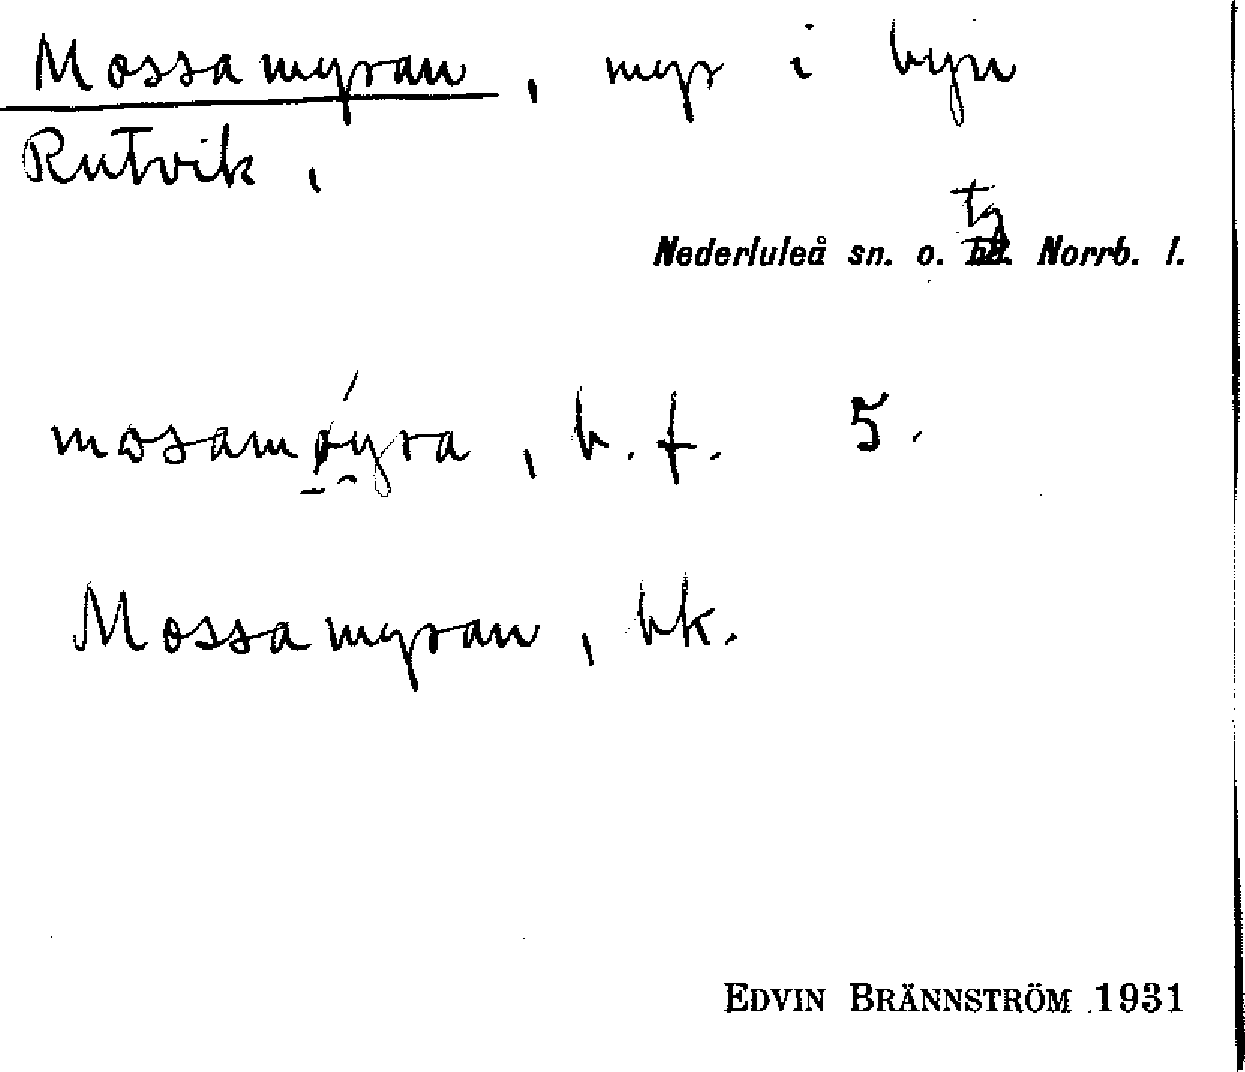 Mossamyran, myr i byn
Rutvik,
Nederluleå sn. o. tg Norrb. l.
mosamøyra, b. f. 5.
Mossamyran, bk.
EDVIN BRÄNNSTRÖM 1931